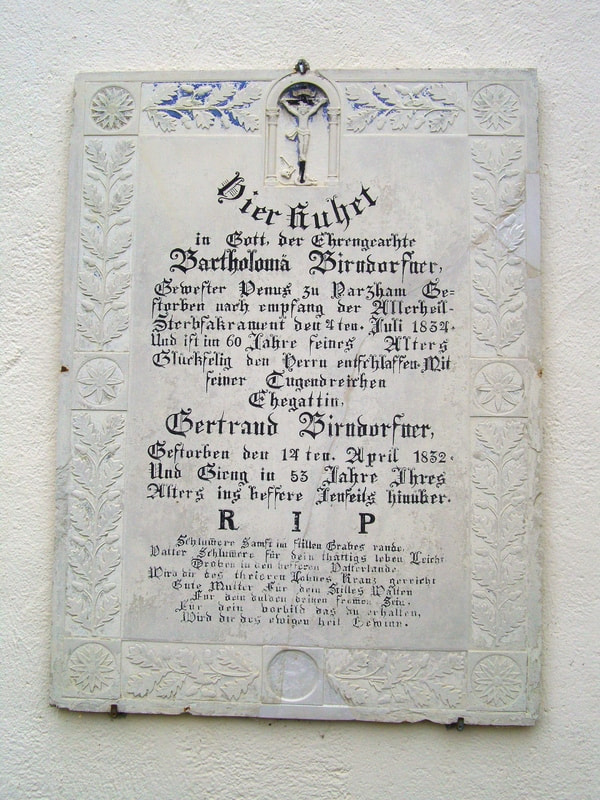 Hier Ruhet
in Gott, der Ehrengeachte
Bartholomä Birndorfner,
Gewester Venus zu Parzham Ge=
storben nach empfang der Allerheil-
Sterbsakrament den 4ten. Juli 1834.
Und ist im 60 Jahre seines Alters
Glückselig den Herrn entschlaffen. Mit
seiner Tugendreichen
Ehegattin,
Gertraud Birndorfner,
Gestorben den 14ten. April 1832.
Und Gieng in 53 Jahre Ihres
Alters ins bessere Jenseits hinüber.
R I P
Schlumere Sanft im stillen Grabes rande.
Vatter Schlumere für dein thättigs leben Leicht
Droben in den besseren Vatterlande.
Wird dir des theieren Lohnes Kranz gereicht
Gute Mutter Für dein Stilles Walten
Für dein dulden deinen fromen Sein,
Für dein vorbild das du erhalten,
Wird die des ewigen heil Gewinn.